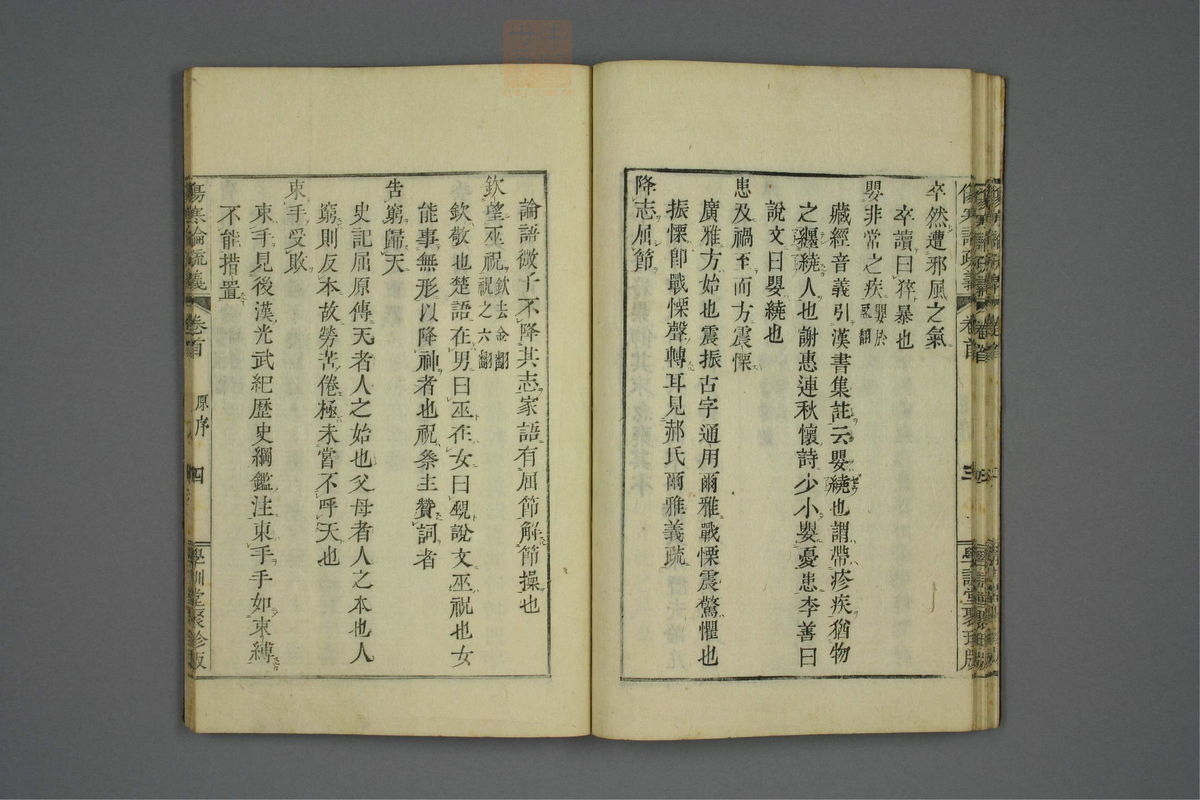 卒然遭邪風之氣
卒讀曰猝暴也
嬰非常之疾嬰於盈翻
藏經音義引漢書集註云嬰繞也謂帶疹疾猶物
之纏繞人也謝惠連秋懷詩少小嬰憂患李善曰
說文曰嬰繞也
患及禍至而方震慄
廣雅方始也震振古字通用爾雅戰慄震驚懼也
振慄卽戰慄聲轉耳見郝氏爾雅義疏
降志屈節
論語微子不降其志家語有屈節解節操也
欽望巫祝欽去金翻祝之六翻
欽敬也楚語在男曰巫在女曰覡說文巫祝也女
能事無形以降神者也祝祭主贊詞者
告窮歸天
史記屈原傳天者人之始也父母者人之本也人
窮則反本故勞苦倦極未嘗不呼天也
束手受敗
束手見後漢光武紀歷史綱鑑注束手手如束縛
不能措置
傷寒論疏義
卷首
原序
四
學訓堂聚珍版